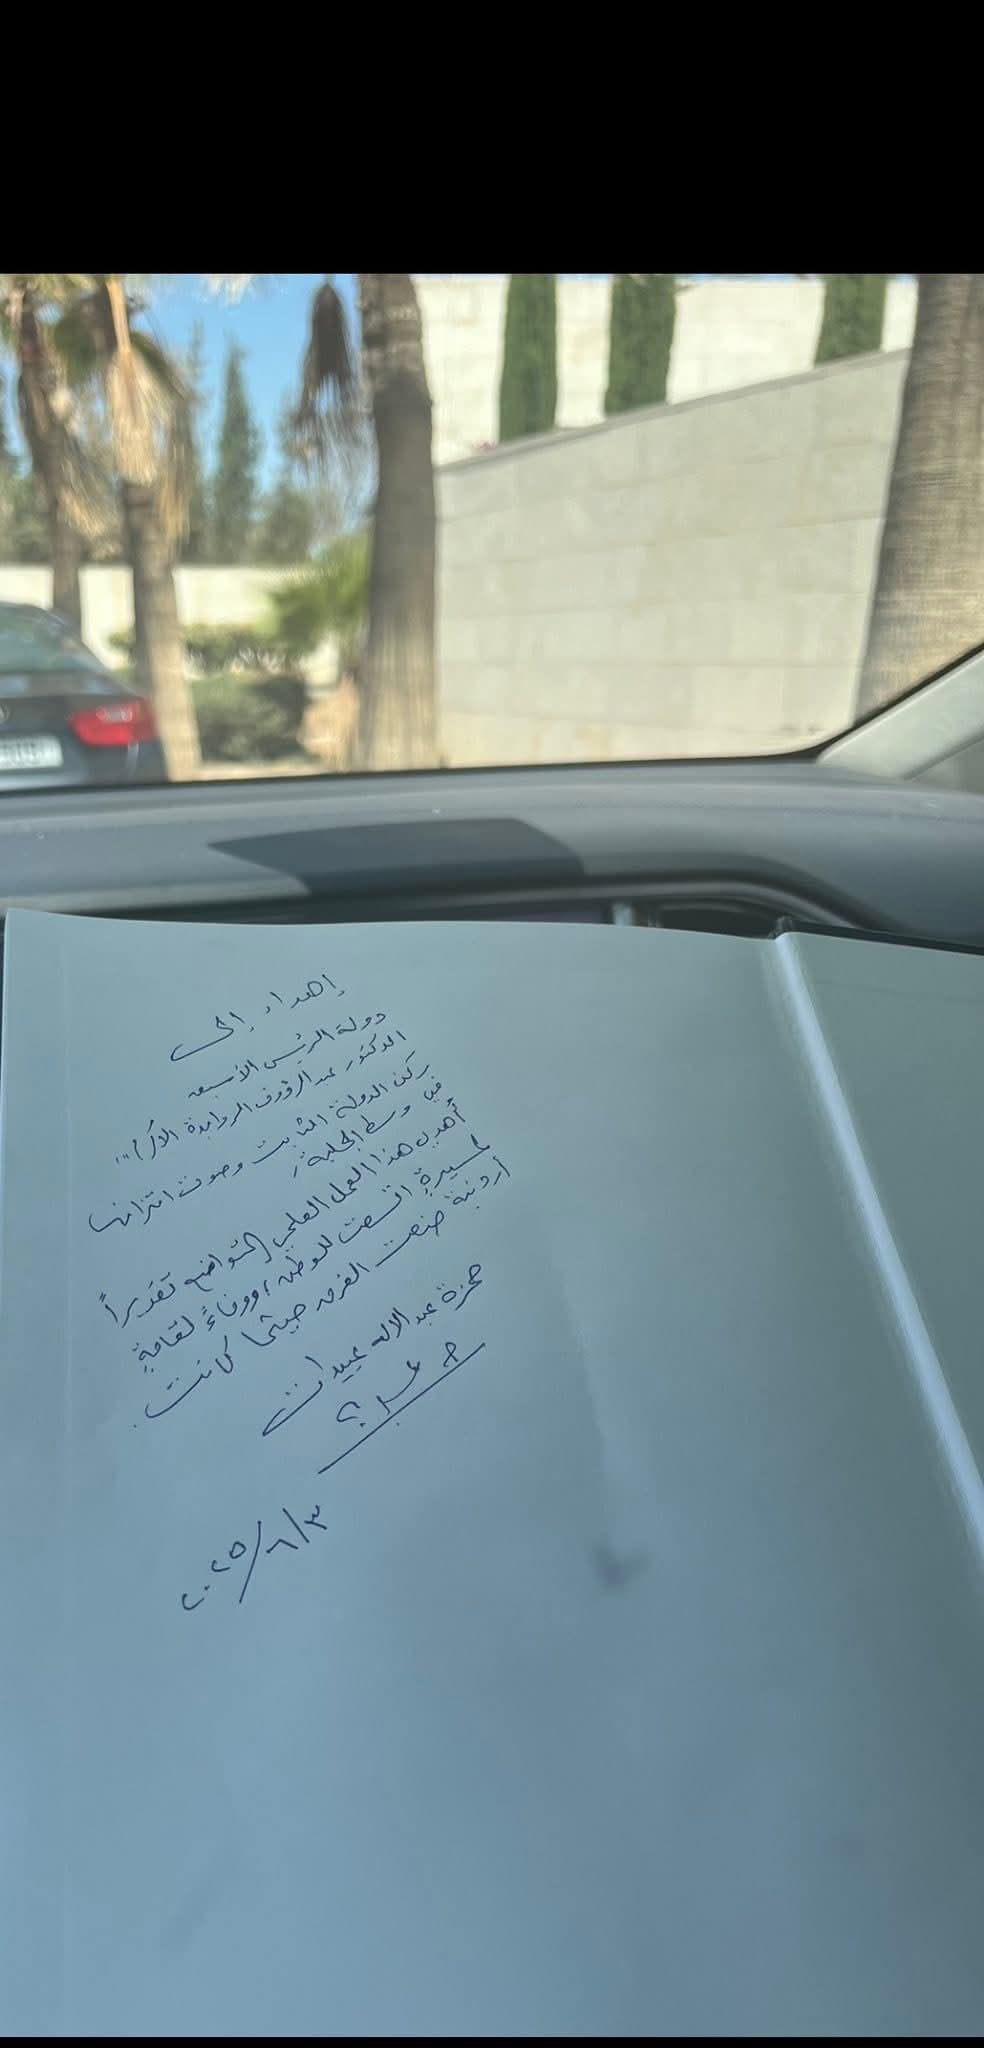 إهداء إلى
دولة الرئيس الأسبق
الدكتور عبدالرؤوف الروابدة الأكرم،،
ركن الدولة الثابت وصوت اتزانها
في وسط الجلبة،
أُهدي هذا العمل العلمي المتواضع تقديراً
لمسيرةٍ اتسعت للوطن، ووفاءً لقامةٍ
أردنية صنعت الفرق حيثما كانت.
حمزة عبدالاله عبيدات
٢٠٢٥/٦/٣